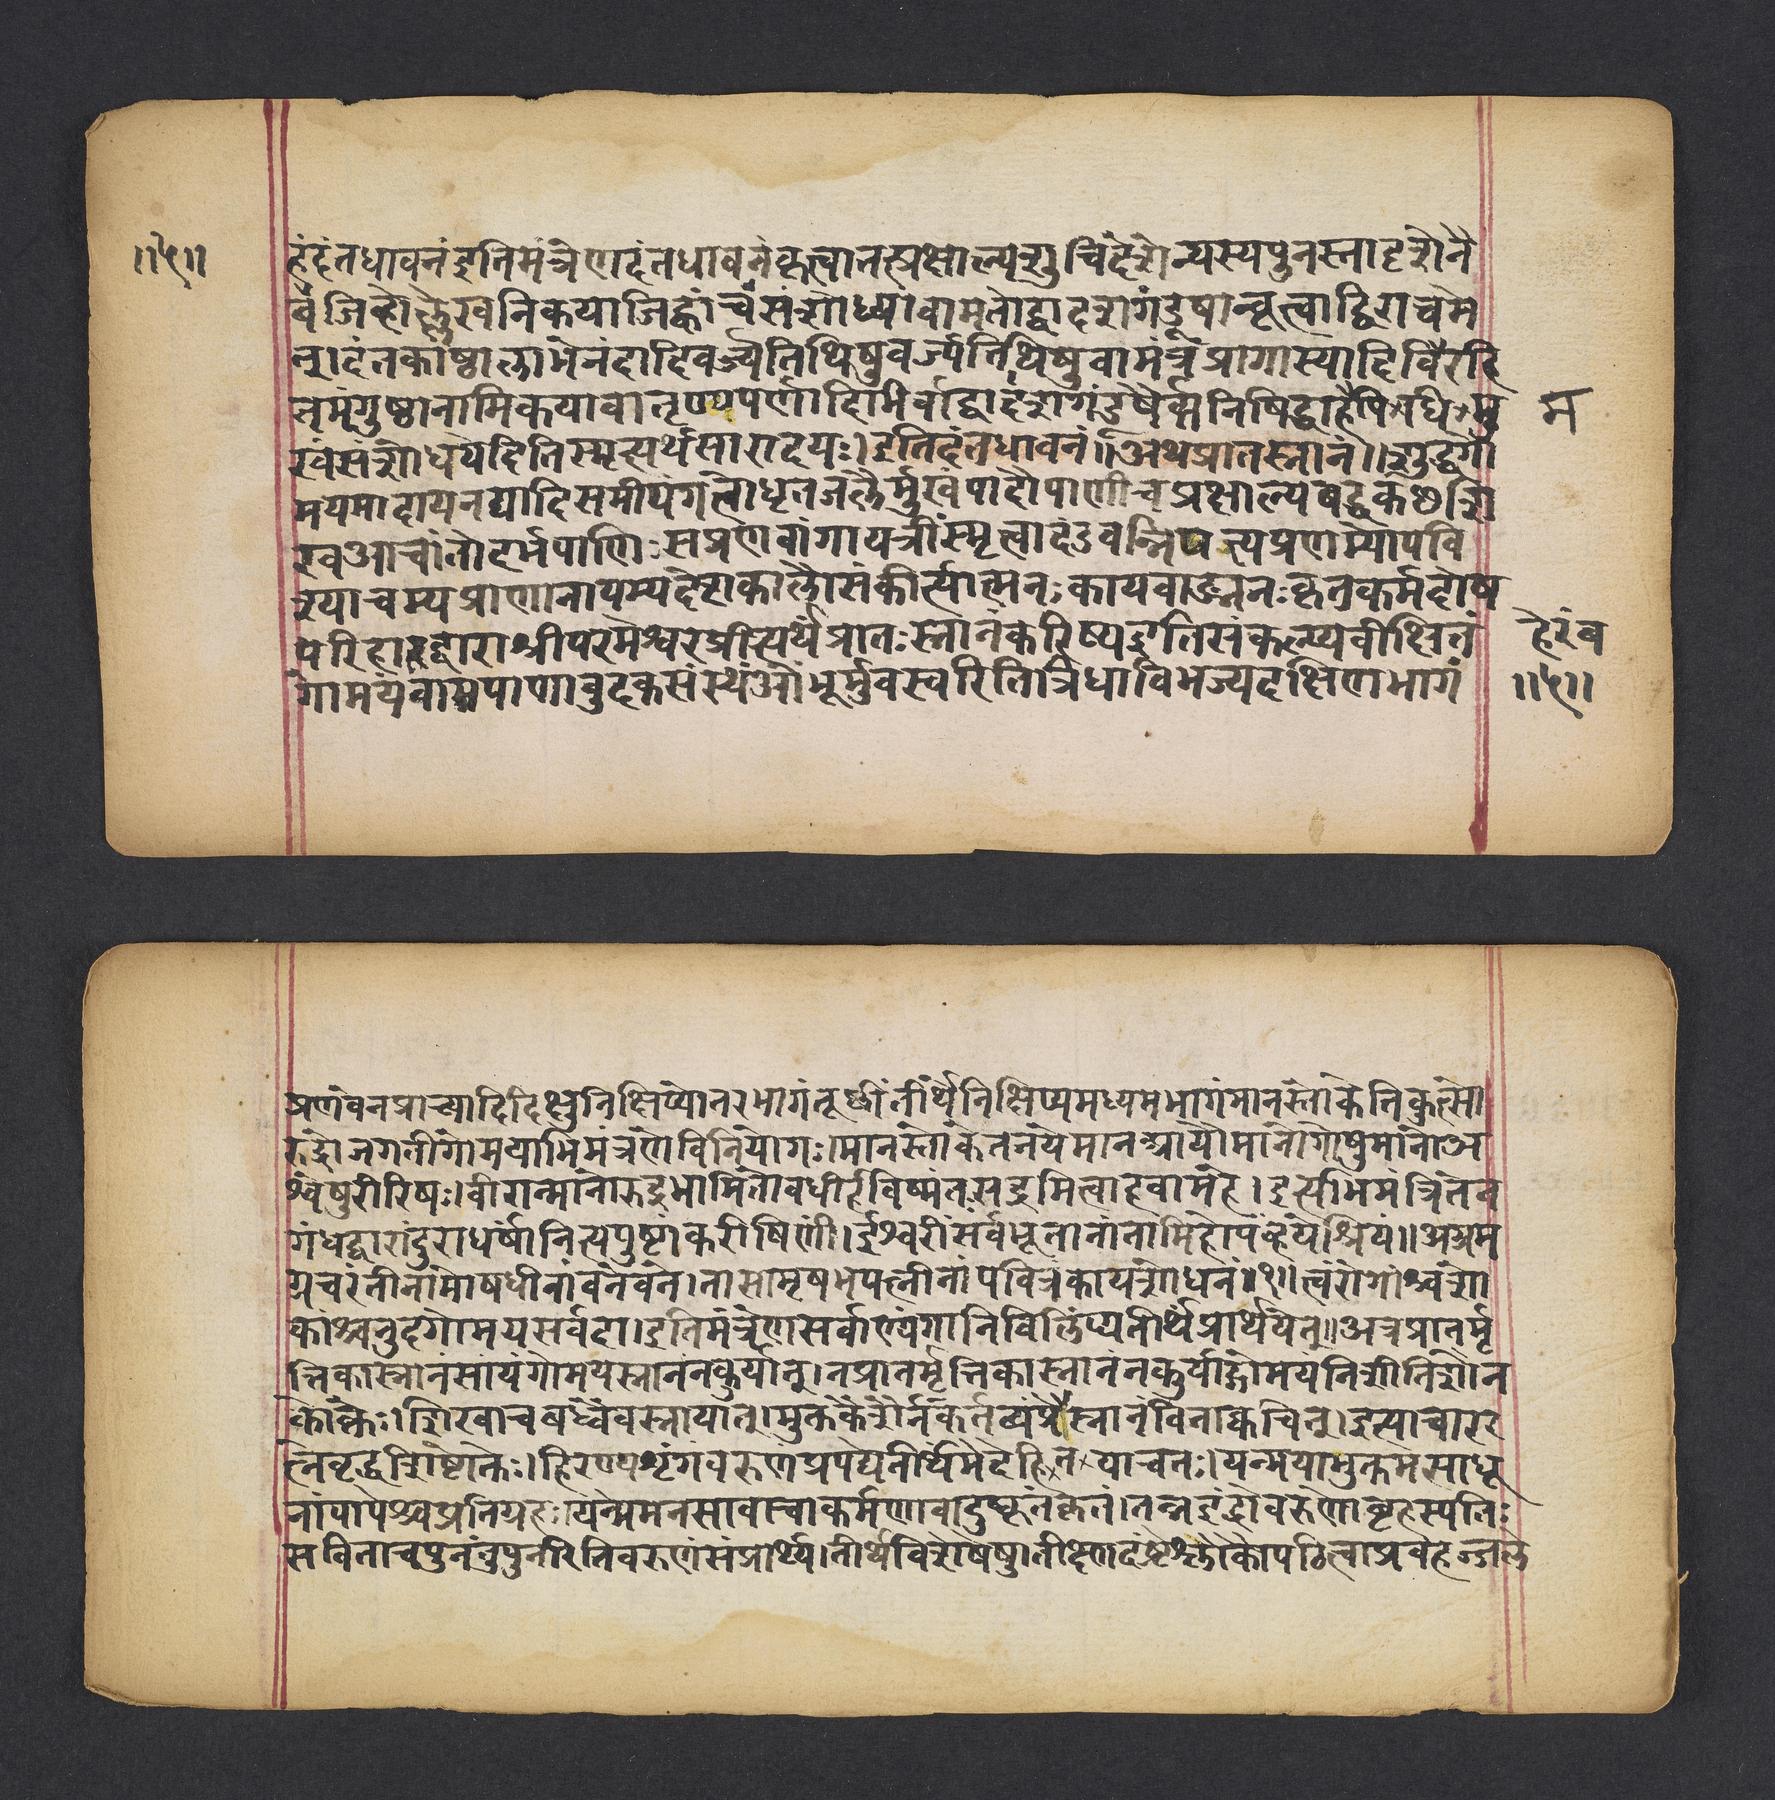 ॥५॥
हंदंतधावनंइतिमंत्रेणदंतधावनंकृत्वातत्प्रक्षाल्यशुचिदेशेन्यस्यपुनस्नादृशेनै
वजिव्होल्लेखनिकयाजिह्वांचसंशोध्यवामतोद्वादशगंडूषान्कृत्वाद्विराचमे
त्।दंतकाष्ठालाभेनंदादिवर्ज्यतिथिषुवर्ज्यतिथिषुवामंत्रंप्रागास्यादिविरहि
तमंगुष्ठानामिकयावातृणपर्णादिभिर्वाद्वादशगंडुषैर्वानिषिद्धाहेपि धि मु
म
खंसंशोधयेदितिस्मृत्यर्थसारादयः।इतिदंतधावनं॥अथप्रातस्नानं॥शुद्धगो
मयमादायनद्यादिसमीपंगत्वाधृतजलैर्मुखंपादौपाणीचप्रक्षाल्यबद्धकछशि
खआचांतोदर्भपाणिःसप्रणवांगायत्रींस्मृत्वादंडवन्निपत्यप्रणम्यापवि
त्रयाचम्यप्राणानायम्यदेशकालौसंकीर्त्यात्मनःकायवाङ्मनःकृतकर्मदोष
परिहारद्वाराश्रीपरमेश्वरप्रीत्यर्थंप्रातःस्नानंकरिष्यइतिसंकल्प्यवीक्षितं
हेरंब
गोमयंवामपाणावुदकसंस्थंओंभूर्भुवस्वरितित्रिधाविभज्यदक्षिणभागं
॥५॥
प्रणवेनप्राच्यादिदिक्षुनिक्षिप्योत्तरभागंतूष्णींतीर्थेनिक्षिप्यमध्यमभागंमानस्तोकेतिकुत्सो
रुद्रोजगतीगोमयाभिमंत्रणेविनियोगः।मानस्तोकेतनयेमानआयौमानोगोषुमानोअ
श्वेषुरीरिषः।वीरान्मानोरुद्रभामितोवधीर्हविष्मंतःसदमित्वाहवामहे।इत्यभिमंत्रितंव
गंधद्वारांदुराधर्षांनित्यपुष्टांकरीषिणीं।ईश्वरींसर्वभूतानांतामिहोपह्वयेश्रियं॥अग्रम
ग्रंचरंतीनामोषधीनांवनेवने।तासामृषभपत्नीनांपवित्रंकायशोधनं॥१॥त्वंरोगांश्चशो
कांश्चनुदगोमयसर्वदा।इतिमंत्रेणसर्वाण्यंगानिविलिंप्यतीर्थंप्रार्थयेत्॥अत्रप्रातर्मृ
त्तिकास्नानंसायंगोमयस्नानंनकुर्यात्।नप्रातर्मृत्तिकास्नानंनकुर्याद्गोमयंनिशीतिशौन
कोक्तेः।शिखांचबध्वैवस्नायात्।मुक्तकेशैर्नकर्तव्यंप्रेतस्नानंविनाक्वचित्।इत्याचारर
त्नेवृद्धशिष्टोक्तेः।हिरण्यशृंगंवरुणंप्रपद्येतीर्थंमेदेहि याचतः।यन्मयाभुक्तमसाधू
नांपापेभ्यश्चप्रतिग्रहः।यन्मेमनसावाचाकर्मणावादुष्कृतंकृतं।तन्नइंद्रोवरुणोबृहस्पतिः
सविताचपुनंतुपुनरितिवरुणंसंप्रार्थ्य।तीर्थविशेषेषु।तीक्ष्णदंष्ट्रश्लोकौपठित्वाप्रवहज्जले